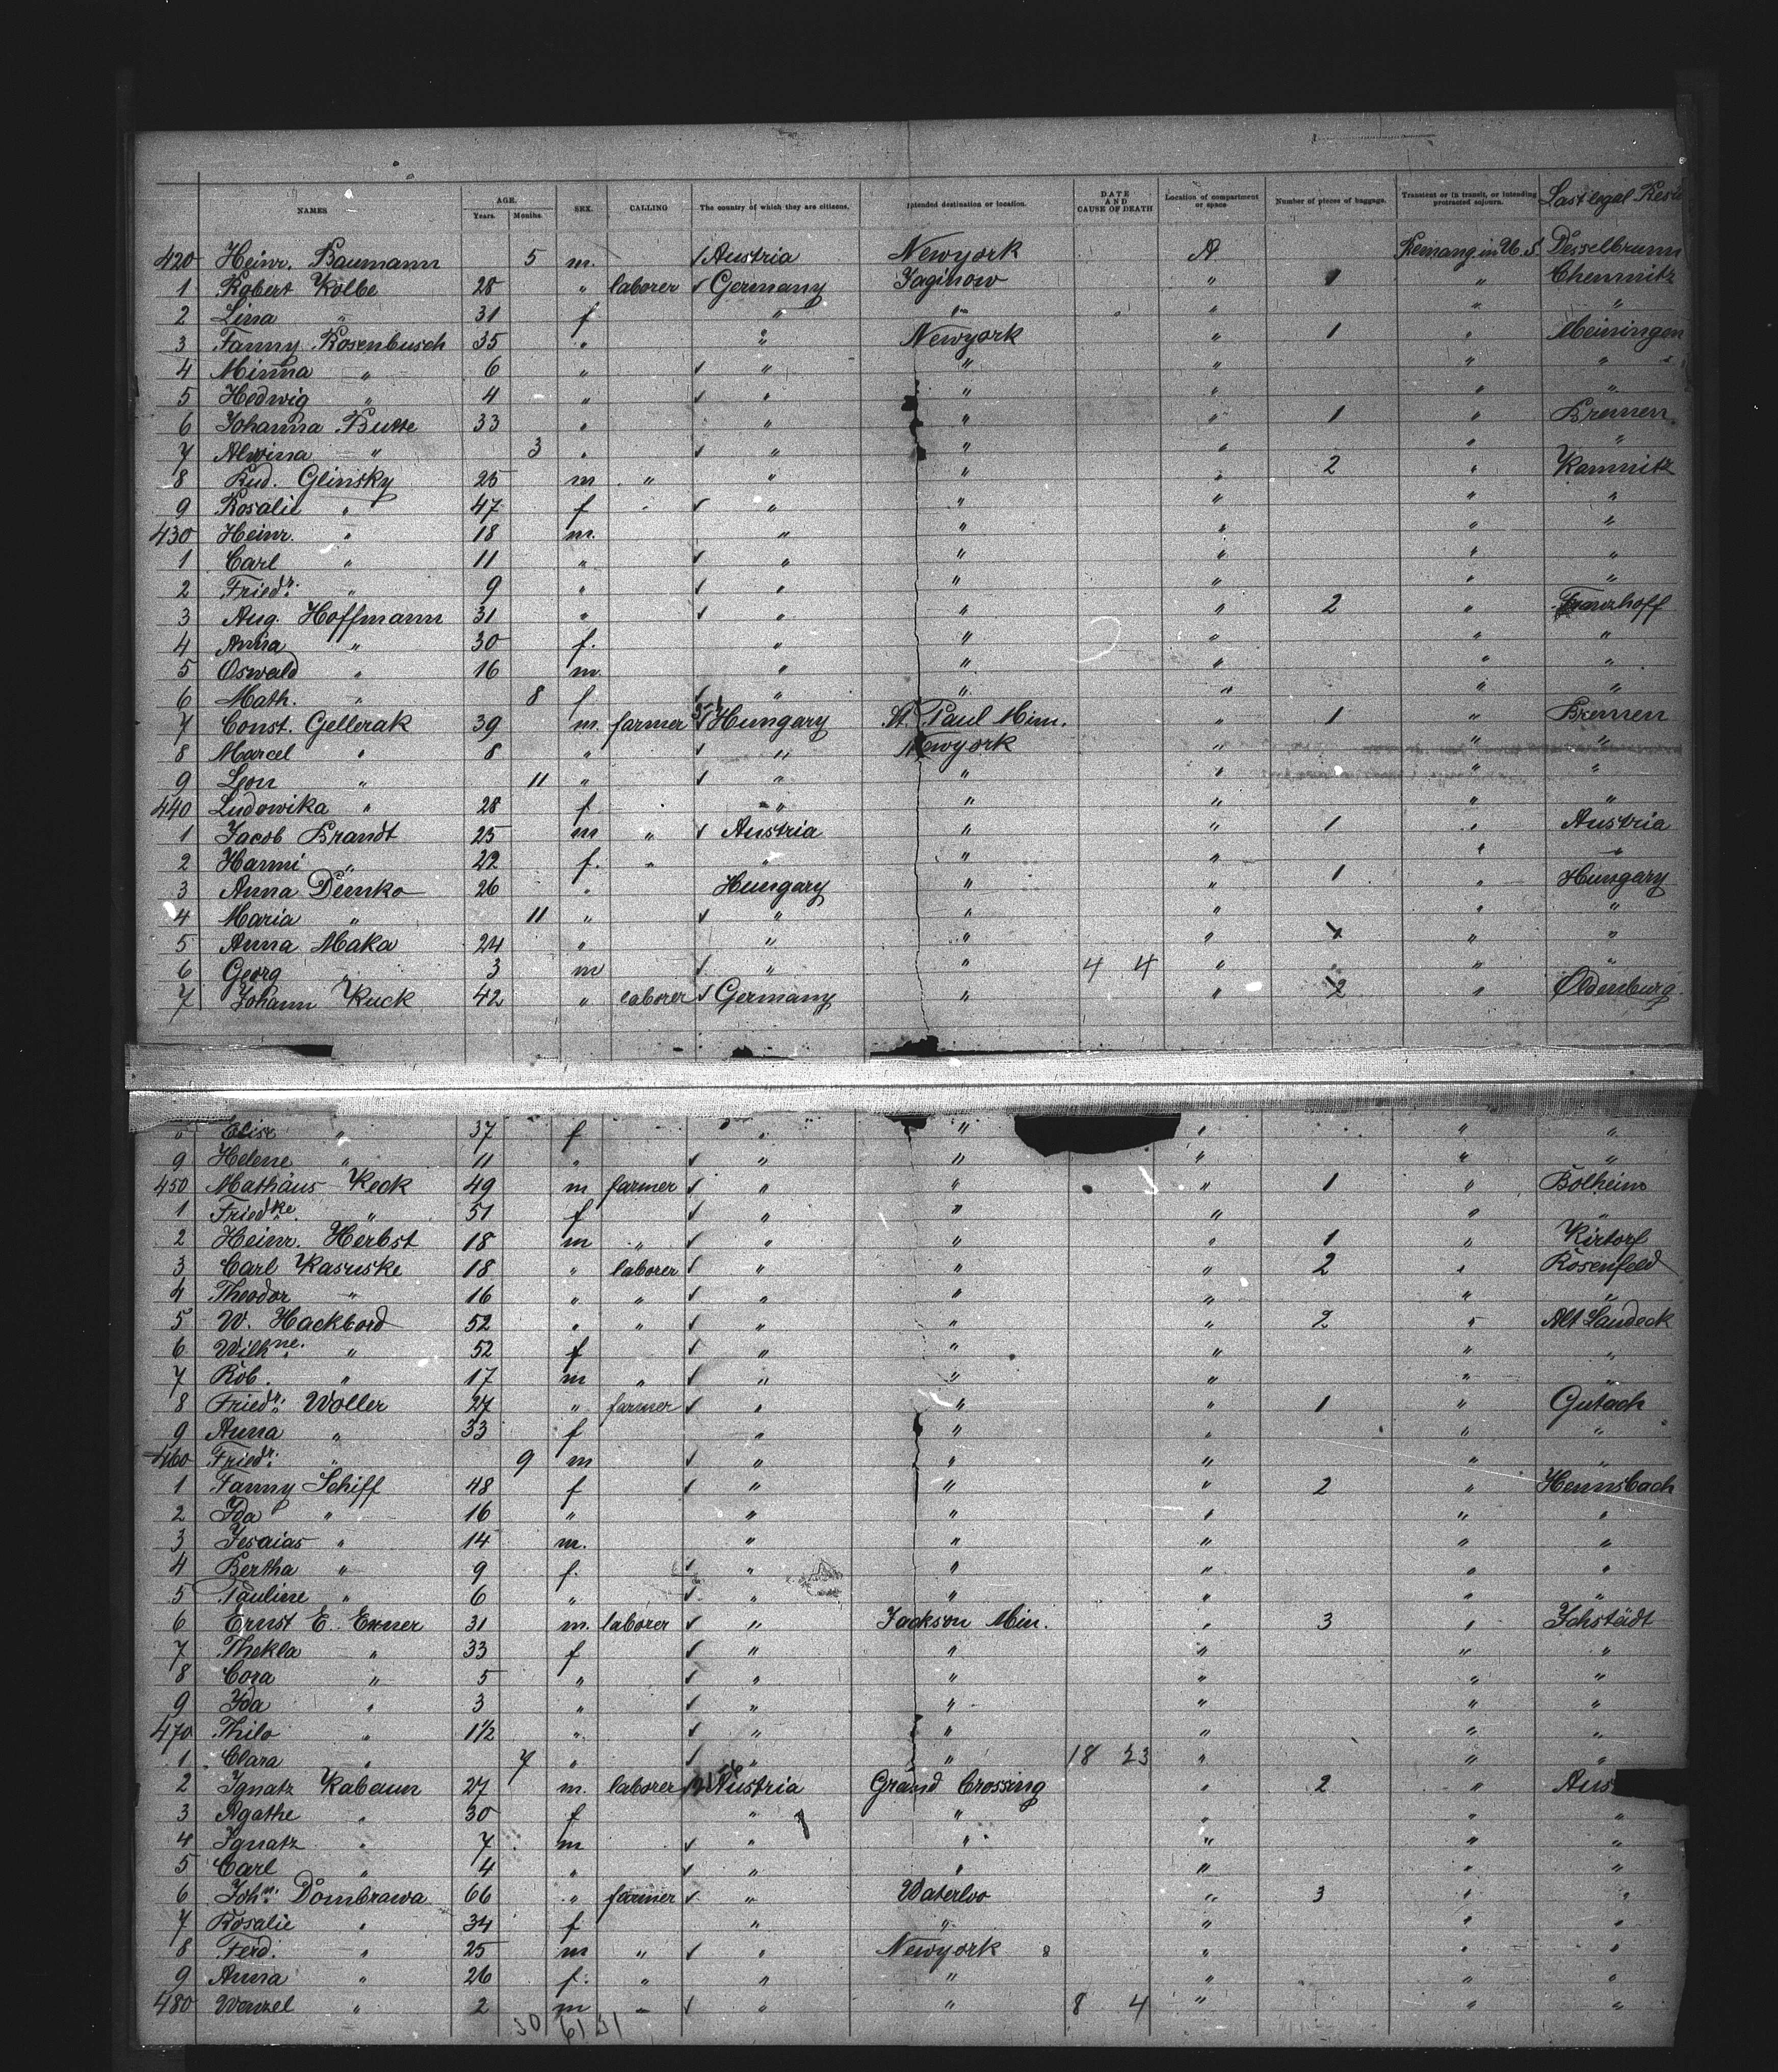 NAMES AGE. Years. Months. SEX. CALLING The country of which they are citizens. Intended destination or location. DATE AND CAUSE OF DEATH Location of compartment or space Number of pieces of baggage. Transient or in transit, or intending protracted sojourn. Last legal Resi
420 Heinr. Baumann 5 m. ✓ Austria Newyork A Remang in U. S. Desselbrunn
1 Robert Kolbe 28 " laborer ✓ Germany " 1 " Chemnitz
2 Lina " 31 f " " " " "
3 Fanny Rosenbusch 35 " " Newyork " 1 " Meiningen
4 Minna " 6 " ✓ " " " " "
5 Hedwig " 4 " ✓ " " " " "
6 Johanna Butte 33 " " " " 1 " Bremen
7 Alwina " 3 " ✓ " " " " "
8 Rud. Glinsky 25 m " " " " 2 " Kamnitz
9 Rosalie " 47 f " ✓ " " " " "
430 Heinr. " 18 m. " " " " "
1 Carl " 11 " ✓ " " " " "
2 Friedr. " 9 " ✓ " " " " "
3 Aug. Hoffmann 31 " ✓ " " " 2 "
4 Anna " 30 f. " " " " "
5 Oswald " 16 m. " " " " "
6 Math. " 8 f ✓ " " " " "
7 Const. Gellerak 39 m. farmer ✓ Hungary St Paul Min. " 1 " Bremen
8 Marcel " 8 " ✓ " Newyork " " "
9 Leon " 11 " ✓ " " " " "
440 Ludowika " 28 f " " " " "
1 Jacob Brandt 25 m " ✓ Austria " " 1 " Austria
2 Hanni " 22 f. " " " " " "
3 Anna Demko 26 " Hungary " " 1 " Hungary
4 Maria " 11 " ✓ " " " " "
5 Anna Maka 24 " " " " 1 " "
6 Georg " 3 m ✓ " " 4 4 " " "
7 Johann Kuck 42 " laborer ✓ Germany " " 2 " Oldenburg
" Elise " 37 f " " " " "
9 Helene " 11 " ✓ " " " " "
450 Mathäus Keck 49 m farmer ✓ " " " 1 " Bolheim
1 Friedke " 51 f ✓ " " " " "
2 Heinr. Herbst 18 m " ✓ " " " 1 " Kirtorf
3 Carl Kasuske 18 " laborer ✓ " " " 2 " Rosenfeld
4 Theodor " 16 " " ✓ " " " " "
5 W. Hackbord 52 " " ✓ " " " 2 " Alt Landeck
6 Wilhne. " 52 f ✓ " " " " "
7 Rob. " 17 m " ✓ " " " " "
8 Friedr. Woller 27 " farmer ✓ " " " 1 " Gutach
9 Anna " 33 f " " " " "
460 Friedr. " 9 m ✓ " " " " "
1 Fanny Schiff 48 f ✓ " " " 2 " Hennsbach
2 Ida " 16 " " " " " "
3 Jesaias " 14 m. " " " " "
4 Bertha " 9 f. ✓ " " " " "
5 Pauline " 6 " ✓ " " " " "
6 Ernst E. Exner 31 m. laborer ✓ " Jackson Min. " 3 " Ichstädt
7 Thekla " 33 f ✓ " " " " "
8 Cora " 5 " ✓ " " " " "
9 Ida " 3 " ✓ " " " " "
470 Thilo " 1½ " ✓ " " " " "
1 Clara " 7 " ✓ " " 18 23 " " "
2 Ignatz Kabaun 27 m. laborer Austria Grand Crossing " 2 " Aus
3 Agathe " 30 f " " " " "
4 Ignatz " 7 m ✓ " " " " "
5 Carl " 4 " ✓ " " " " "
6 John. Dombrawa 66 " farmer ✓ " Waterloo " 3 " "
7 Rosalie " 34 f " " " " "
8 Ferd. " 25 m " ✓ " Newyork " " "
9 Anna " 26 f. " " " " " "
480 Wenzel " 2 m " ✓ " " 8 4 " " "